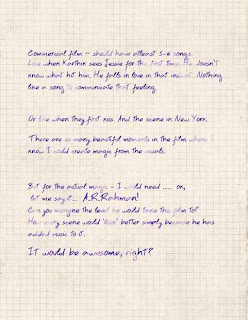 Commercial film - should have atleast 5-6 songs.
Like when Karthik sees Jessie for the first time. He doesn't
know what hit him. He falls in love in that instant. Nothing
like a song to communicate that feeling.
Or like when they first kiss. And the scene in New York.
There are so many beautiful moments in the film where I
know I could create magic from the visuals.
But for the actual magic - I would need .... ok,
let me say it... A.R.Rahman!
Can you imagine the level he would take the film to?
How every scene would 'look' better simply because he has
added music to it.
It would be awesome, right?